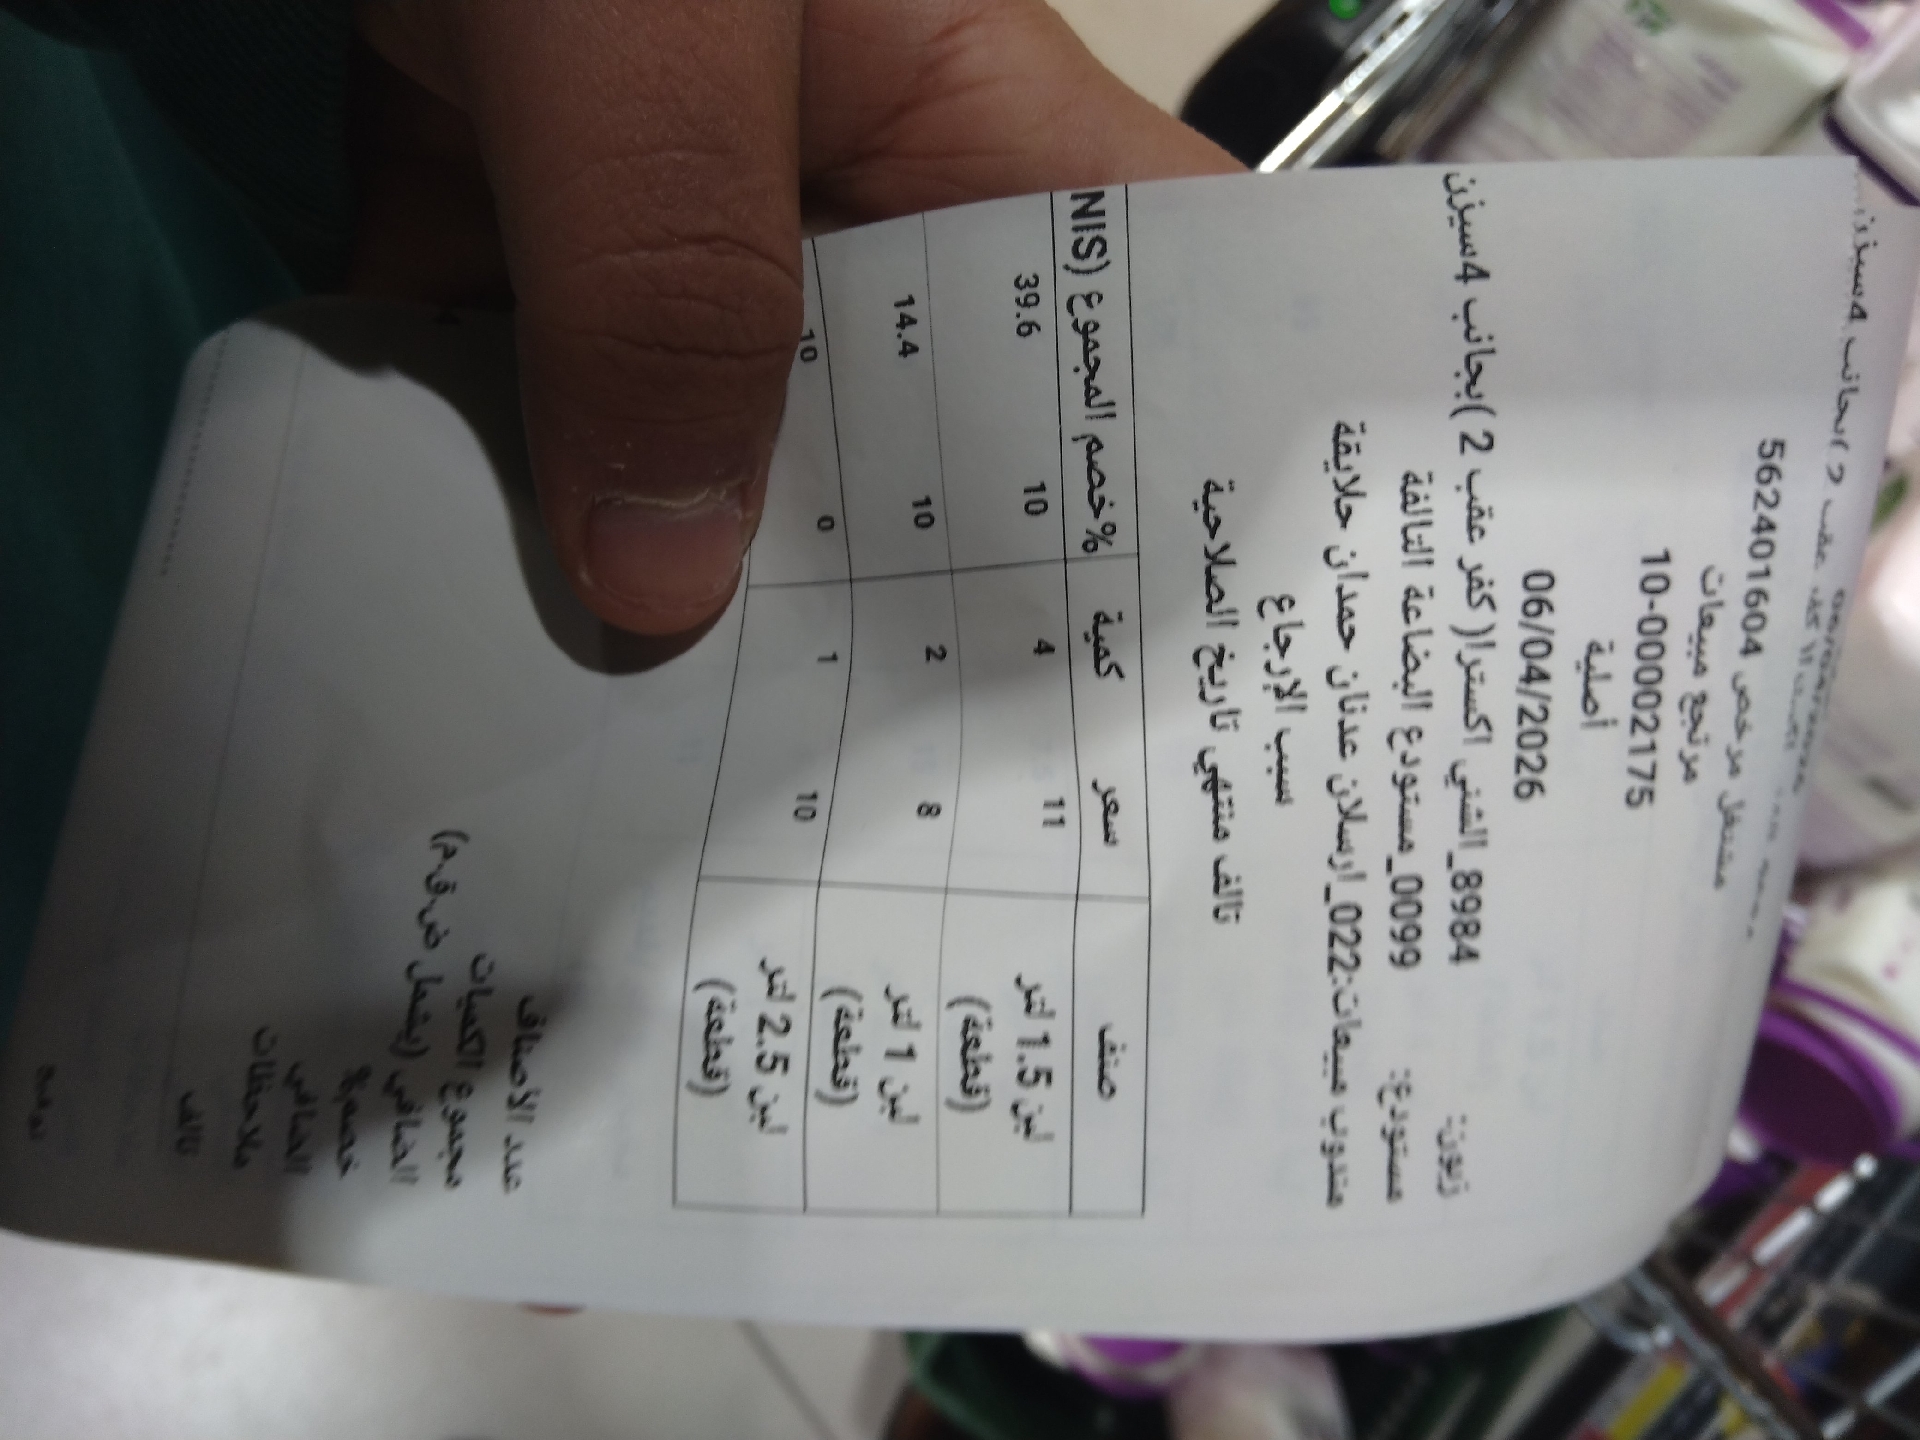 مشتغل مرخص 562401604
مرتجع مبيعات
10-00002175
أصلية
06/04/2026
زبون: 8984_الشني اكسترا( كفر عقب 2 )بجانب 4سيزن
مستودع: 0099_مستودع البضاعة التالفة
مندوب مبيعات:022_ارسلان عدنان حمدان حلايقة
سبب الإرجاع
تالف منتهي تاريخ الصلاحية
صنف سعر كمية %خصم المجموع (NIS
لبن 1.5 لتر (قطعة) 11 4 10 39.6
لبن 1 لتر (قطعة) 8 2 10 14.4
لبن 2.5 لتر (قطعة) 10 1 0 10
عدد الأصناف
مجموع الكميات
الصافي (يشمل ض.ق.م)
خصم%
الصافي
ملاحظات
تالف